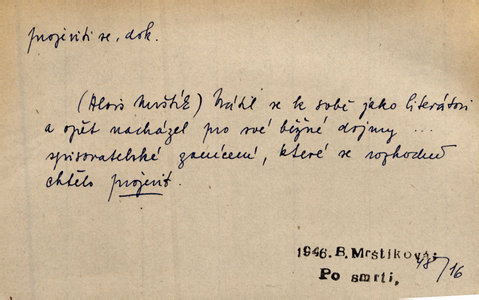 projeviti se, dok.
(Alois Mrštík) Vrátil se k sobě jako literátovi
a opět nacházel pro své běžné dojmy ...
spisovatelské zanícení, které se rozhodně
chtělo projevit.
1946. B. Mrštíková:
Po smrti,
48/16